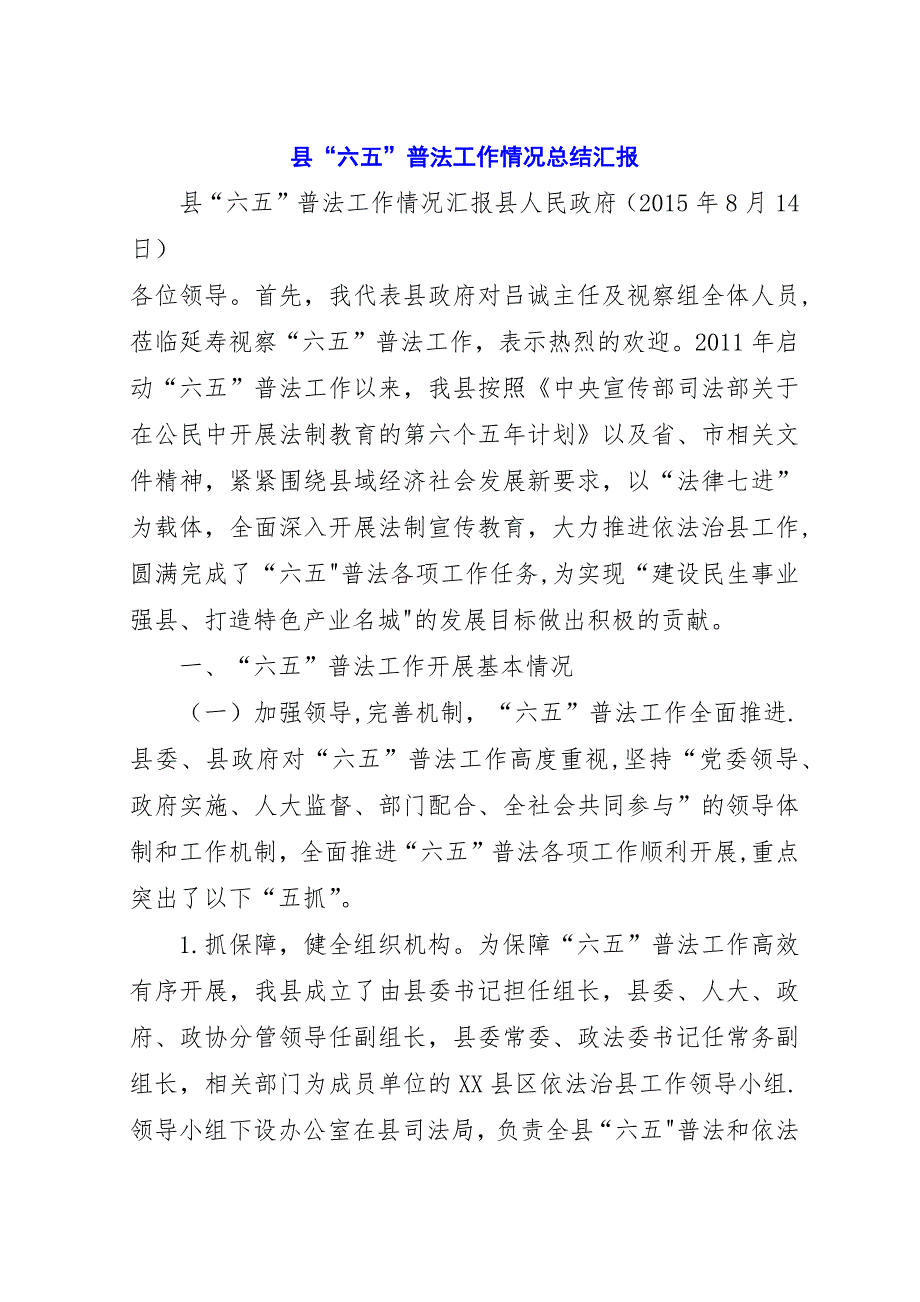 县“六五”普法工作情况总结汇报
县“六五”普法工作情况汇报县人民政府（2015 年 8 月 14
日）
各位领导。首先，我代表县政府对吕诚主任及视察组全体人员,
莅临延寿视察“六五”普法工作，表示热烈的欢迎。2011 年启
动“六五”普法工作以来，我县按照《中央宣传部司法部关于
在公民中开展法制教育的第六个五年计划》以及省、市相关文
件精神，紧紧围绕县域经济社会发展新要求，以“法律七进”
为载体，全面深入开展法制宣传教育，大力推进依法治县工作,
圆满完成了“六五"普法各项工作任务,为实现“建设民生事业
强县、打造特色产业名城"的发展目标做出积极的贡献。
一、“六五”普法工作开展基本情况
（一）加强领导,完善机制，“六五”普法工作全面推进.
县委、县政府对“六五”普法工作高度重视,坚持“党委领导、
政府实施、人大监督、部门配合、全社会共同参与”的领导体
制和工作机制，全面推进“六五”普法各项工作顺利开展,重点
突出了以下“五抓”。
1.抓保障，健全组织机构。为保障“六五”普法工作高效
有序开展，我县成立了由县委书记担任组长，县委、人大、政
府、政协分管领导任副组长，县委常委、政法委书记任常务副
组长，相关部门为成员单位的 XX 县区依法治县工作领导小组.
领导小组下设办公室在县司法局，负责全县“六五"普法和依法